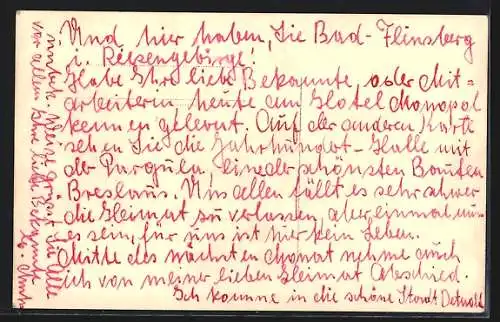 Und hier haben, Sie Bad-Flinsberg
i. Riesengebirge!
Habe Ihre liebe Bekannte oder Mit-
arbeiterin heute am Hotel Monopol
kennen gelernt. Auf der anderen Karte
sehen Sie die Jahrhundert-Halle mit
der Pargula, eine der schönsten Bauten
Breslaus. Uns allen fällt es sehr schwer
die Heimat zu verlassen, aber einmal muss
es sein, für uns ist hier kein Leben.
Mitte des nächsten Monat nehme auch
ich von meiner lieben Heimat Abschied.
Ich komme in die schöne Stadt Detmold
unbek. Weise grüsst Sie alle
vor allem Ihre liebe Bekannte